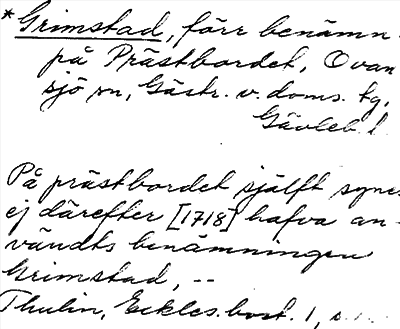 *Grimstad, förr benämn.
på Prästbordet, Ovan
sjö sn, Gästr. v. doms. tg,
Gävleb. l.
På prästbordet själft synes
ej därefter [1718] hafva an-
vändts benämningen
Grimstad, --
Thulin, Eckles. bost. 1, s.